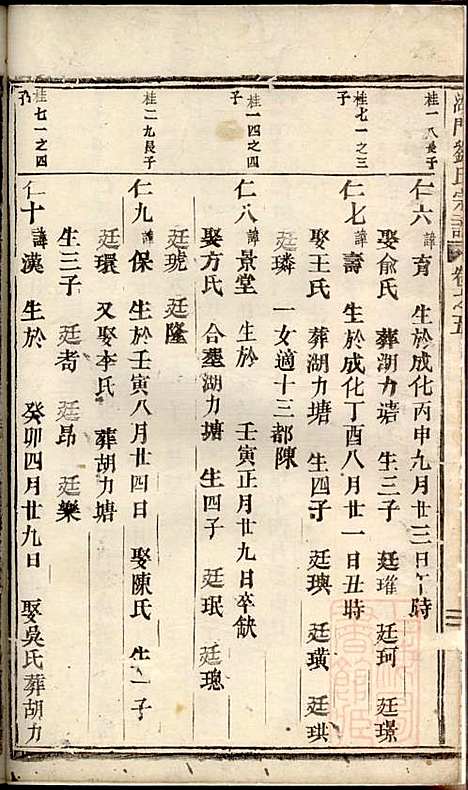 劉氏宗譜 卷之五
桂一八長子
仁六 諱育 生於成化丙申九月廿三日午時
娶俞氏 葬湖力塘 生三子 廷瓘 廷珂 廷璟
桂七一之三子
仁七 諱壽 生於成化丁酉八月廿一日丑時
娶王氏 葬湖力塘 生四子 廷璵 廷璜 廷珙
廷璘 一女適十三都陳
桂一四之四子
仁八 諱景堂 生於 壬寅正月廿九日卒缺
娶方氏 合塟湖力塘 生四子 廷珉 廷璁
廷琥 廷隆
桂二九長子
仁九 諱保 生於壬寅八月廿四日 娶陳氏 生一子
廷環 又娶李氏 葬胡力塘
生三子 廷 廷昂 廷樂
桂七一之四子
仁十 諱漢 生於 癸卯四月廿九日 娶吳氏葬胡力